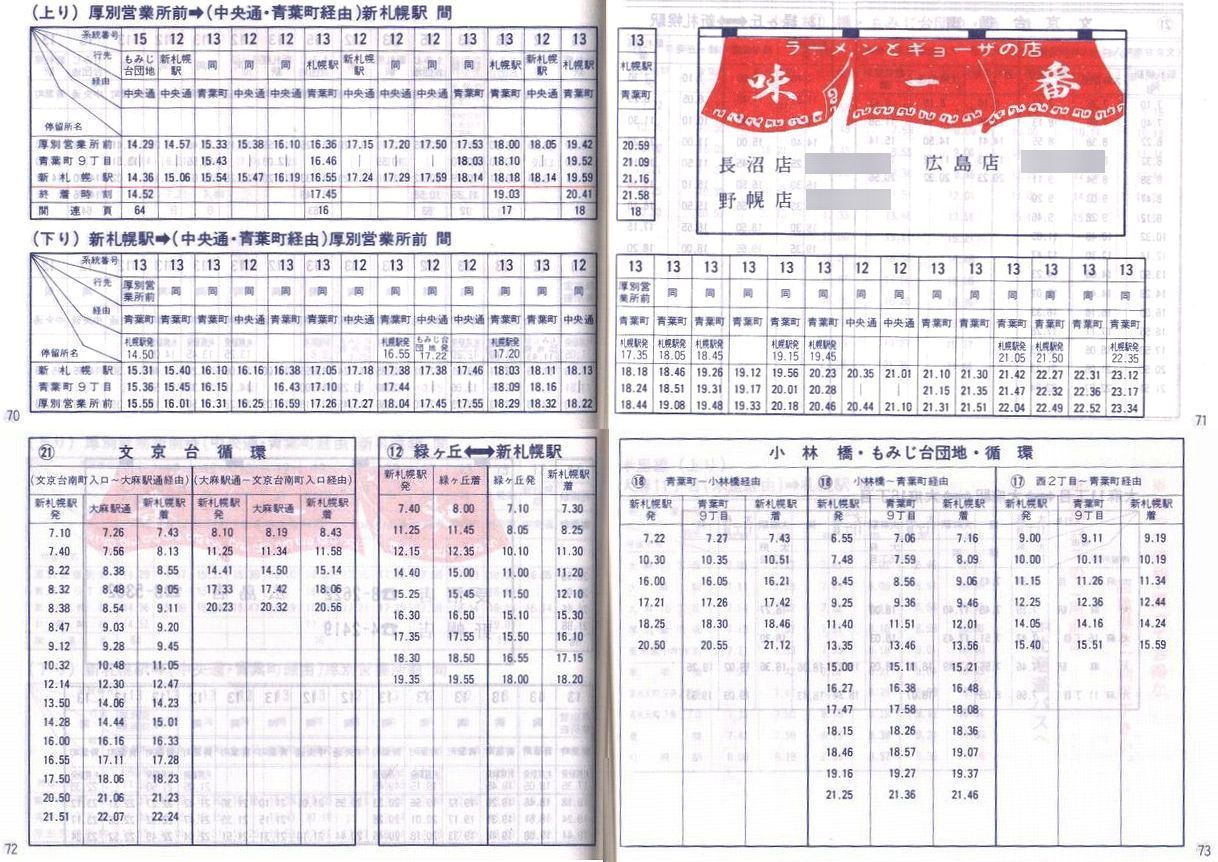 (上り) 厚別営業所前➡(中央通・青葉町経由)新札幌駅 間
系統番号 15 12 13 12 12 13 12 12 12 13 13 12 13
行先 もみじ台団地 新札幌駅 同 同 同 札幌駅 新札幌駅 同 同 同 札幌駅 新札幌駅 札幌駅
経由 中央通 中央通 青葉町 中央通 中央通 青葉町 中央通 中央通 中央通 青葉町 青葉町 中央通 青葉町
停留所名
厚別営業所前 14.29 14.57 15.33 15.38 16.10 16.36 17.15 17.20 17.50 17.53 18.00 18.05 19.42
青葉町9丁目 | | 15.43 | | 16.46 | | | 18.03 18.10 | 19.52
新札幌駅 14.36 15.06 15.54 15.47 16.19 16.55 17.24 17.29 17.59 18.14 18.18 18.14 19.59
終着時刻 14.52 17.45 19.03 20.41
関連頁 64 16 17 18
(下り) 新札幌駅➡(中央通・青葉町経由)厚別営業所前 間
系統番号 13 13 13 12 13 13 12 13 12 12 13 13 12
行先 厚別営業所前 同 同 同 同 同 同 同 同 同 同 同 同
経由 青葉町 青葉町 青葉町 中央通 青葉町 青葉町 中央通 青葉町 中央通 中央通 青葉町 青葉町 中央通
停留所名 札幌駅発 14.50 札幌駅発 16.55 もみじ台団地発 17.22 札幌駅発 17.20
新札幌駅 15.31 15.40 16.10 16.16 16.38 17.05 17.18 17.38 17.38 17.46 18.03 18.11 18.13
青葉町9丁目 15.36 15.45 16.15 | 16.43 17.10 | 17.44 | | 18.09 18.16 |
厚別営業所前 15.55 16.01 16.31 16.25 16.59 17.26 17.27 18.04 17.45 17.55 18.29 18.32 18.22
70
13
札幌駅
青葉町
20.59
21.09
21.16
21.58
18
ラーメンとギョーザの店
味一番
長沼店 広島店
野幌店
13 13 13 13 13 13 12 12 13 13 13 13 13 13
厚別営業所前 同 同 同 同 同 同 同 同 同 同 同 同 同
青葉町 青葉町 青葉町 青葉町 青葉町 青葉町 中央通 中央通 青葉町 青葉町 青葉町 青葉町 青葉町 青葉町
札幌駅発 17.35 札幌駅発 18.05 札幌駅発 18.45 札幌駅発 19.15 札幌駅発 19.45 札幌駅発 21.05 札幌駅発 21.50 札幌駅発 22.35
18.18 18.46 19.26 19.12 19.56 20.23 20.35 21.01 21.10 21.30 21.42 22.27 22.31 23.12
18.24 18.51 19.31 19.17 20.01 20.28 | | 21.15 21.35 21.47 22.32 22.36 23.17
18.44 19.08 19.48 19.33 20.18 20.46 20.44 21.10 21.31 21.51 22.04 22.49 22.52 23.34
71
㉑ 文京台循環
(文京台南町入口~大麻駅通経由) (大麻駅通~文京台南町入口経由)
新札幌駅発 大麻駅通 新札幌駅着 新札幌駅発 大麻駅通 新札幌駅着
7.10 7.26 7.43 8.10 8.19 8.43
7.40 7.56 8.13 11.25 11.34 11.58
8.22 8.38 8.55 14.41 14.50 15.14
8.32 8.48 9.05 17.33 17.42 18.06
8.38 8.54 9.11 20.23 20.32 20.56
8.47 9.03 9.20
9.12 9.28 9.45
10.32 10.48 11.05
12.14 12.30 12.47
13.50 14.06 14.23
14.28 14.44 15.01
16.00 16.16 16.33
16.55 17.11 17.28
17.50 18.06 18.23
20.50 21.06 21.23
21.51 22.07 22.24
72
⑫ 緑ヶ丘⟷新札幌駅
新札幌駅発 緑ヶ丘着 緑ヶ丘発 新札幌駅着
7.40 8.00 7.10 7.30
11.25 11.45 8.05 8.25
12.15 12.35 10.10 11.30
14.40 15.00 11.00 11.20
15.25 15.45 11.50 12.10
16.30 16.50 15.10 15.30
17.35 17.55 15.50 16.10
18.30 18.50 16.55 17.15
19.35 19.55 18.00 18.20
小林橋・もみじ台団地・循環
⑱ 青葉町~小林橋経由 ⑱ 小林橋~青葉町経由 ⑰ 西2丁目~青葉町経由
新札幌駅発 青葉町9丁目 新札幌駅着 新札幌駅発 青葉町9丁目 新札幌駅着 新札幌駅発 青葉町9丁目 新札幌駅着
7.22 7.27 7.43 6.55 7.06 7.16 9.00 9.11 9.19
10.30 10.35 10.51 7.48 7.59 8.09 10.00 10.11 10.19
16.00 16.05 16.21 8.45 8.56 9.06 11.15 11.26 11.34
17.21 17.26 17.42 9.25 9.36 9.46 12.25 12.36 12.44
18.25 18.30 18.46 11.40 11.51 12.01 14.05 14.16 14.24
20.50 20.55 21.12 13.35 13.46 13.56 15.40 15.51 15.59
15.00 15.11 15.21
16.27 16.38 16.48
17.47 17.58 18.08
18.15 18.26 18.36
18.46 18.57 19.07
19.16 19.27 19.37
21.25 21.36 21.46
73